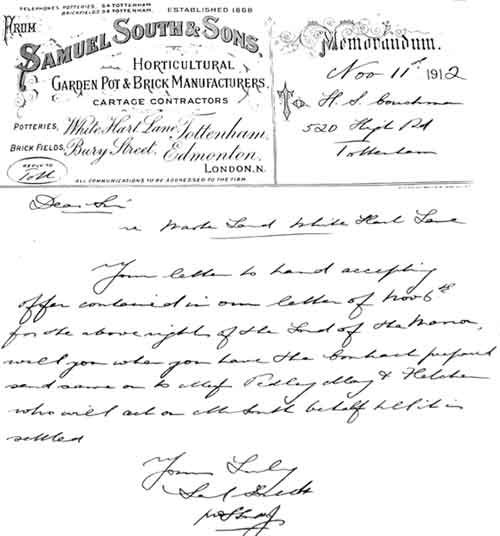 TELEPHONES POTTERIES, 54 TOTTENHAM.
BRICKFIELDS 38 TOTTENHAM.
ESTABLISHED 1868
FROM
SAMUEL SOUTH & SONS,
HORTICULTURAL
GARDEN POT & BRICK MANUFACTURERS.
CARTAGE CONTRACTORS
POTTERIES, White Hart Lane, Tottenham,
BRICK FIELDS, Bury Street, Edmonton,
LONDON. N.
REPLY TO
Tott
ALL COMMUNICATIONS TO BE ADDRESSED TO THE FIRM.
Memorandum.
Nov 11th 1912
To H. S. Couchman
520 High Rd
Tottenham
Dear Sir
re Waste Land White Hart Lane
Your letter to hand accepting
offer contained in our letter of Nov 6th
for the above rights of the Lord of the Manor,
will you when you have the Contract prepared
send same on to Messrs Pedley May & Fletcher
who will act on Mr South behalf till it is
settled
Yours Truly